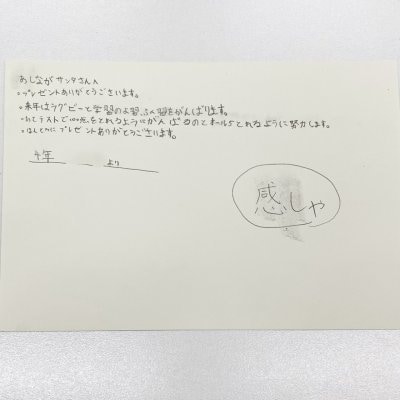 あしながサンタさんへ
・プレゼントありがとうございます。
・来年はラグビーと学習のよ習ふく習をがんばります。
テストで100点をとれるようにがんばるのとオール5とれるように努力します。
・ほんとうにプレゼントありがとうございます。
4年 より
感しゃ